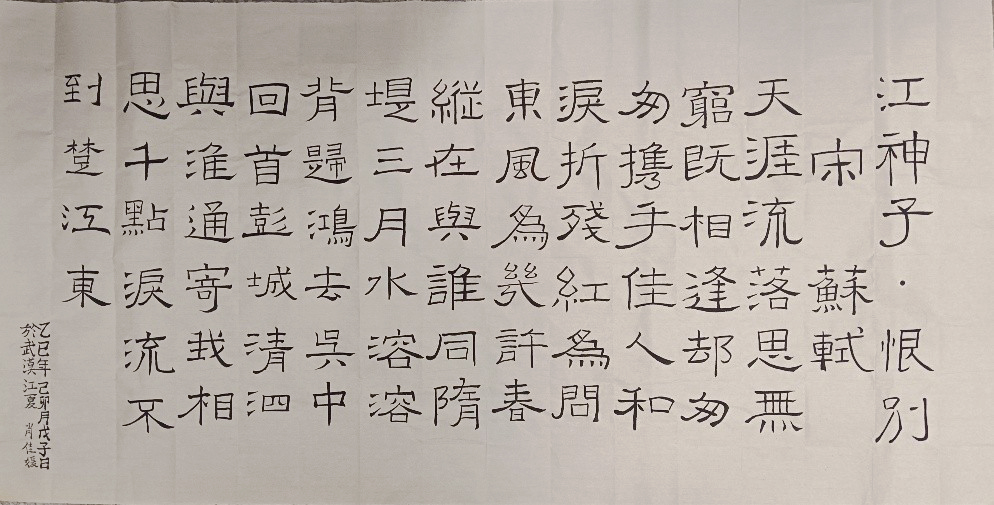 江神子·恨别
宋 蘇軾
天涯流落思無
窮既相逢却匆
匆攜手佳人和
淚折殘紅為問
東風為幾許春
縱在與誰同隋
堤三月水溶溶
背歸鴻去吳中
回首彭城清泗
與淮通寄我相
思千點淚流不
到楚江東
乙巳年己卯月戊子日
於武漢江夏 肖佳